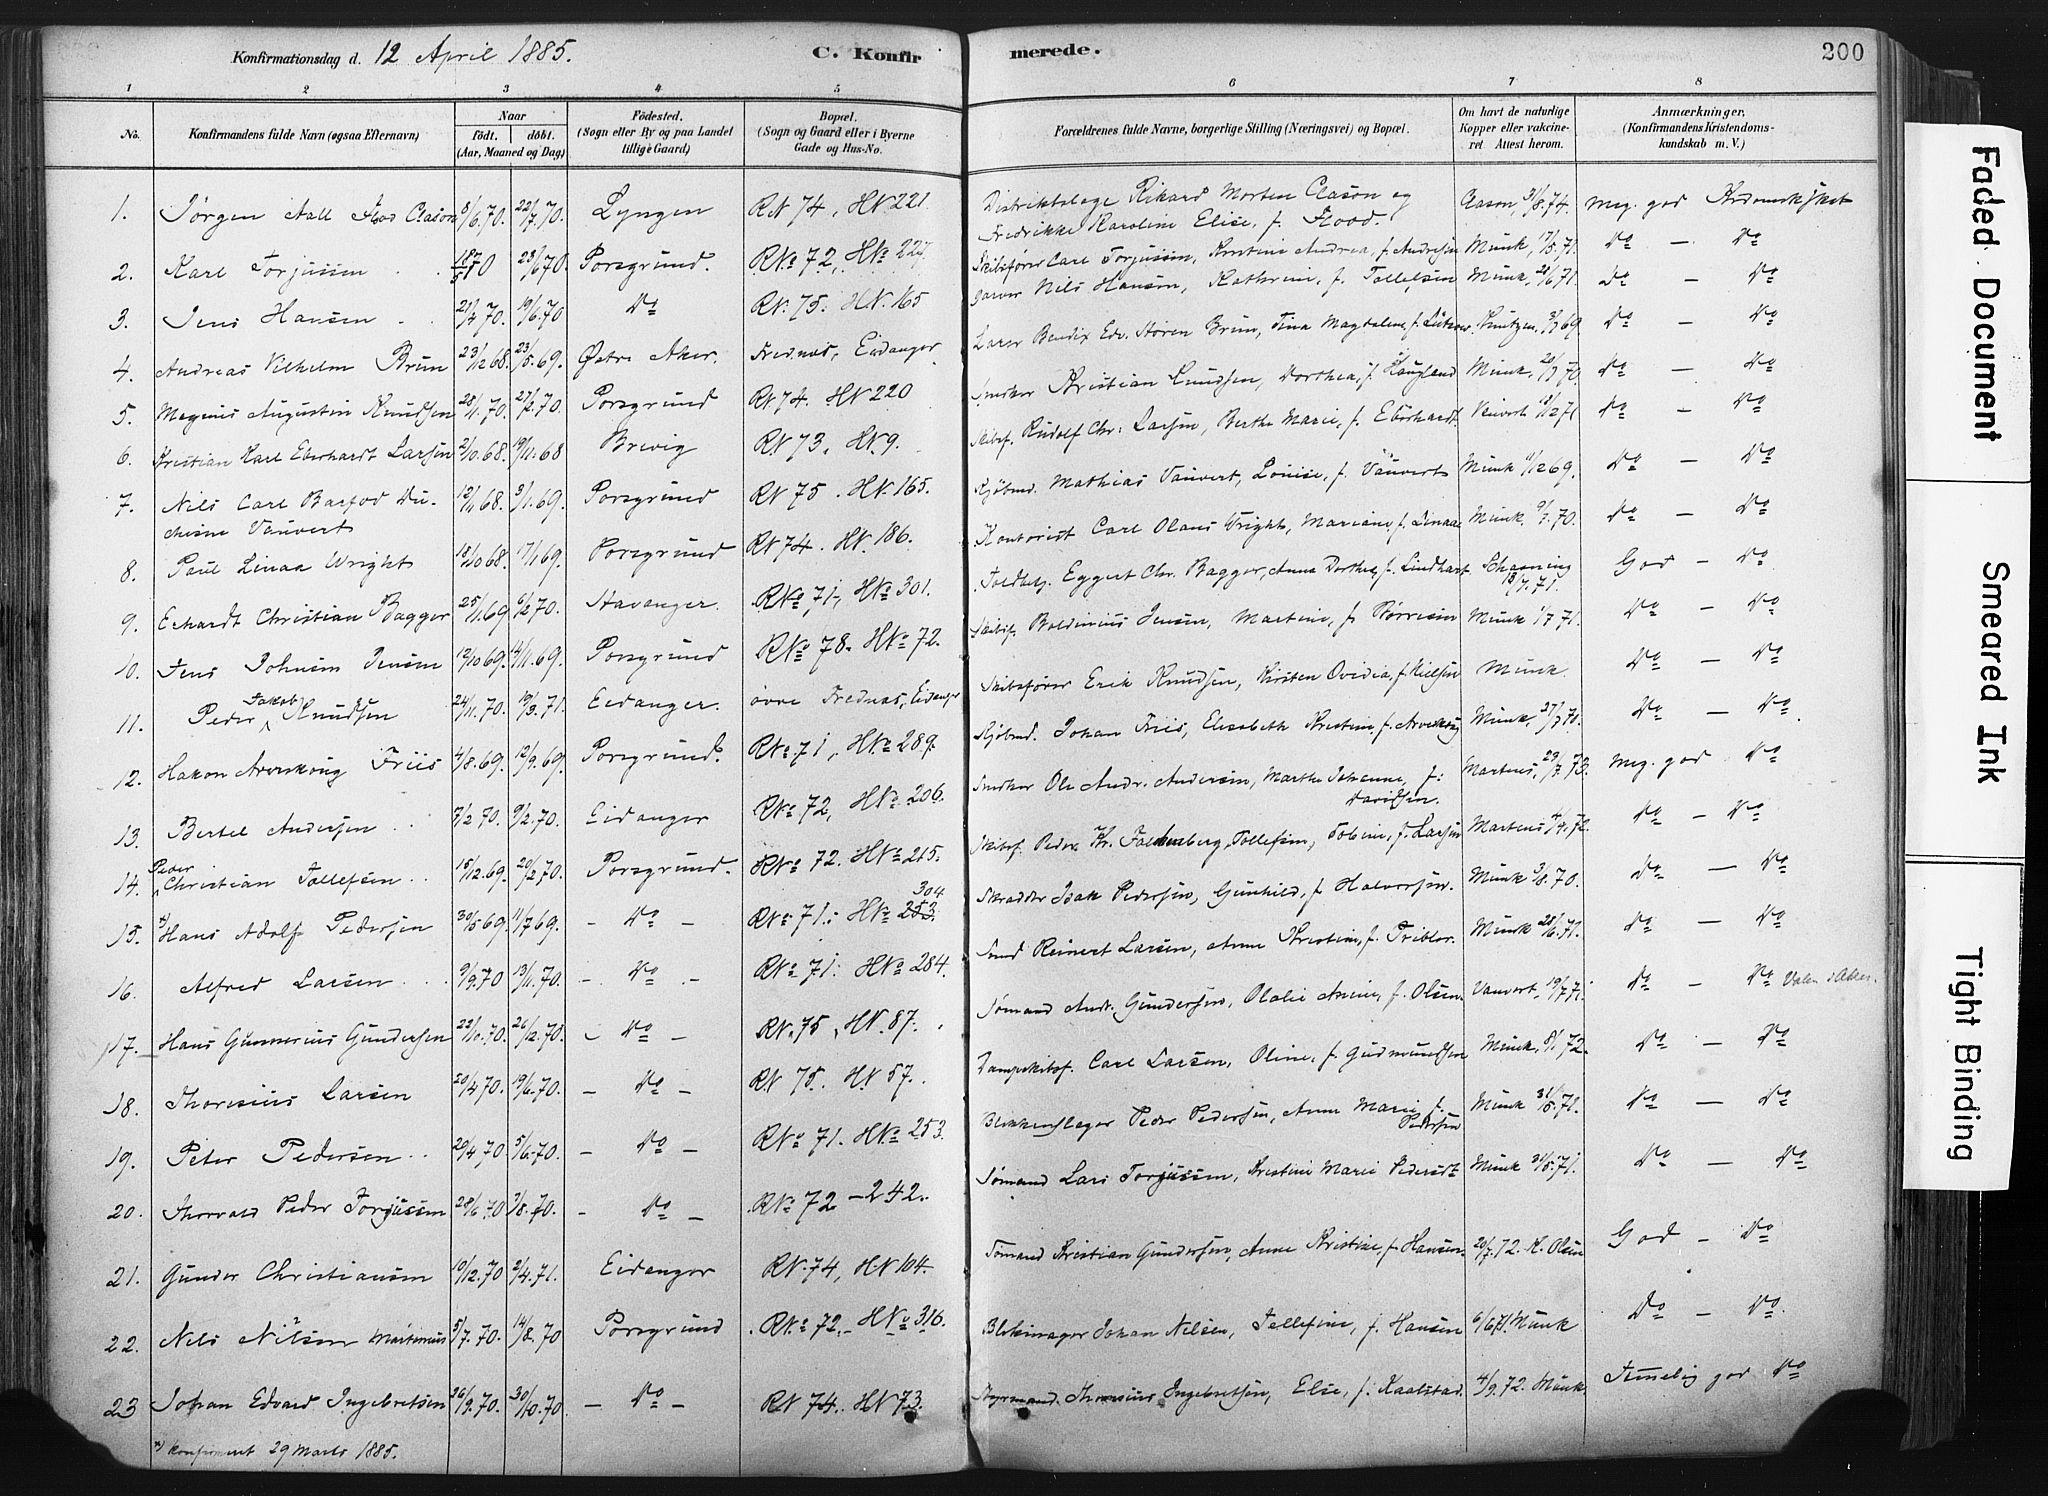 Konfirmationsdag d. 12 April 1885. C. Konfirmerede. 200
1 2 3 4 5 6 7 8
No. Konfirmandens fulde Navn (ogsaa Efternavn) Naar født. døbt. (Aar, Maaned og Dag) Fødested. (Sogn eller By og paa Landet tillige Gaard) Bopæl. (Sogn og Gaard eller i Byerne Gade og Hus-No. Forældrenes fulde Navne, borgerlige Stilling (Næringsvei) og Bopæl. Om havt de naturlige Kopper eller vakcineret. Attest herom. Anmærkninger. (Konfirmandens Kristendomskundskab m. V.)
1. Jørgen Aall Flood Clason 8/6.70. 22/7.70. Lyngen RN 74, HN 221. Distriktslæge Rikard Morten Clason og Fredrikke Karoline Elise, f. Flood. Aason, 31/8.74. Meg. god Krdomskskab
2. Karl Torjussen 23/6 70. Porsgrund. RNo 72, HNo 227. Skibsfører Carl Torjussen, Kristine Andrea, f. Andersen Munk, 17/5.71. Do — Do
3. Jens Hansen 21/4 70. 19/6.70 Do RN. 75. HN. 165 Garver Nils Hansen, Kathrine, f. Tollefsen Munk, 28/6 71. Do — Do
4. Andreas Vilhelm Brun 23/12 68. 23/5.69. Østre Aker. Frednæs, Eidanger Lærer Bendix Edv. Støren Brun, Tina Magdalene, f. Lützow. Knutzen, Do — Do
5. Magnus Augustin Knudsen 28/1.70. 27/2.70. Porsgrund RN 74. HN 220 Snedker Kristian Knudsen, Dorthea, f. Haugland Munk, Do — Do
6. Kristian Karl Eberhardt Larsen 2/10.68. 19/11.68 Brevig RN 73, HN 9. Skibsf. Rudolf Chr. Larsen, Berthe Marie, f. Eberhardt. Vauvert 18/12 71 Do — Do
7. Nils Carl Barfod Duchesne Vauvert 12/11 68. 3/1.69. Porsgrund RN 75. HN. 165. Kjøbmd. Mathias Vauvert, Louise, f. Vauvert Munk 11/12 69. Do — Do
8. Paul Linaa Wright 18/10 68. 17/1 69. Porsgrund RN 74. HN. 186. Kontorist Carl Olaus Wright, Mariane, f. Linaae Munk, 9/7.70. Do — Do
9. Erhardt Christian Bagger 25/11.69 6/2 70. Stavanger. RNo 71, HNo 301. Toldbetj. Eggert Chr. Bagger, Anna Dorthea, f. Lindhart Schanning 13/7.71. God — Do
10. Jens Johnsen Jensen 13/10 69. 14/11.69. Porsgrund RNo 78. HNo 72. Skibsf. Boldinius Jensen, Martine, f. Børresen Munk 1/7 71. Do — Do
11. Peder Jakob Knudsen 24/11.70. 19/3.71. Eidanger. øvre Frednæs, Eidanger Skibsfører Erik Knudsen, Kirsten Ovidia, f. Nielsen Munk. Do — Do
12. Hakon Arveskoug Friis 4/8.69. 12/9.69. Porsgrund. RNo. 71, HNo 289. Kjøbmd. Johan Friis, Elisabeth Kristine, f. Arveskoug Munk, 27/7 70. Do — Do
13. Bertel Andersen 7/2 70. 9/2.70. Eidanger RNo 72, HNo 206. Snedker Ole Andr. Andersen, Marthe Johanne, f. Davidsen. Martens, 29/7.73. Meg. god Do
14. Peder Christian Tollefsen 15/12.69. 20/2 70. Porsgrund. RNo. 72. HNo 215. Skibsf. Peder Kr. Falkenberg Tollefsen, Tobine, f. Larsen Martens 4/4.72. Do — Do
15. *) Hans Adolf Pedersen 30/5 69. 11/7 69. — Do — RNo 71: HNo 253. 304 Skrædder Isak Pedersen, Gunhild, f. Halvorsen. Munk 3/8.70. Do — Do
16. Alfred Larsen 9/9.70 13/11.70. — Do — RNo 71. HNo 284. Smed Reinert Larsen, Anne Kristine, f. Tribler. Munk 28/6.71. Do — Do
17. Hans Gunnerius Gundersen 22/10.70. 26/12.70. — Do — RN. 75, HN. 87. Sømand Andr. Gundersen, Olalie Anine, f. Olsen. Vauvert, 19/7 71. Do — Do
18. Thoresius Larsen 20/4 70. 19/6.70. — Do — RN 75. HN 57. Dampskibsf. Carl Larsen, Oline, f. Gudmundsen Munk, 8/1 72. Do — Do
19. Peter Pedersen 20/4 70. 5/6.70. — Do — RNo 71. HNo 253. Blokkemager Peder Pedersen, Anne Marie f. Pedersen Munk 31/5.71. Do — Do
20. Thorvald Peder Torjussen 28/6.70 7/8.70. — Do — RNo 72 — 242. Sømand Lars Torjussen, Kristine Marie Pedersdt. Munk 31/5.71. Do — Do
21. Gunder Christiansen 10/12.70 2/4.71. Eidanger RN. 74, HN 104. Sømand Kristian Gundersen, Anne Kristine, f. Hansen. 20/7.72. K. Olsen God — Do
22. Nils Nilsen Martinius 5/7.70. 14/8.70 Porsgrund RNo 72. HNo 316. Blokmager Johan Nilsen, Tellefine, f. Hansen 6/6 71. Munk Do — Do
23 Johan Edvard Ingebretsen 26/9.70. 30/10.70 — Do — RN 74. HN 73. Styrmand. Thoresius Ingebretsen, Else, f. Kaalstad. 4/9.72. Munk. Temelig god Do
*) konfirmeret 29 Marts 1885.
Faded Document
Smeared Ink
Tight Binding